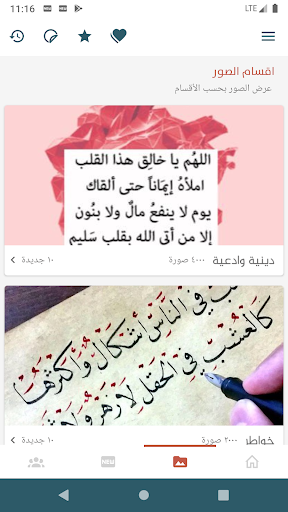 11:16
LTE
اقسام الصور
عرض الصور بحسب الأقسام
اللهُم يا خالِق هذا القلب
املأهُ إيمَاناً حتى ألقاك
يوم لا ينفعُ مالٌ ولا بنُون
إلا من أتى الله بقلب سَليم
دينية وادعية
٤٠٠٠ صورة
١٠ جديدة
في النَّاسِ أَشكَالٌ وَأَكثَرُهَا
كَالعُشبِ فِي الحَقلِ لَا زَهرٌ وَلَا
خواطر
٢٠٠٠ صورة
١٠ جديدة
NEW